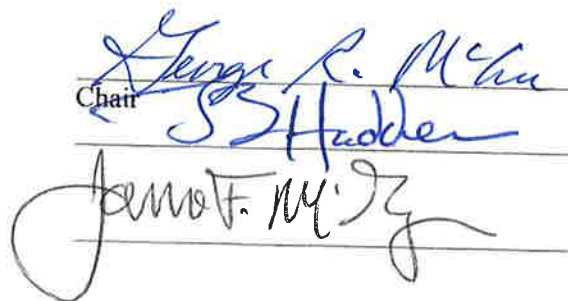 George R. Mc
Chair
SB Hadden
James F. Mc